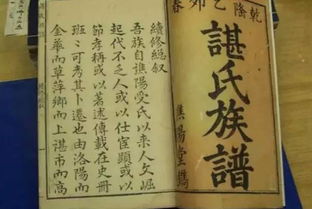 乾隆乙卯春
諶氏族譜
陽堂
續修總叙
吾族自樵陽受氏以來人文崛
起代不乏人或以仕宦顯或以
節孝稱或以著述傳載在史册
班〻可考其卜遷也由洛陽而
金華而草萍鄉而上諶市而高